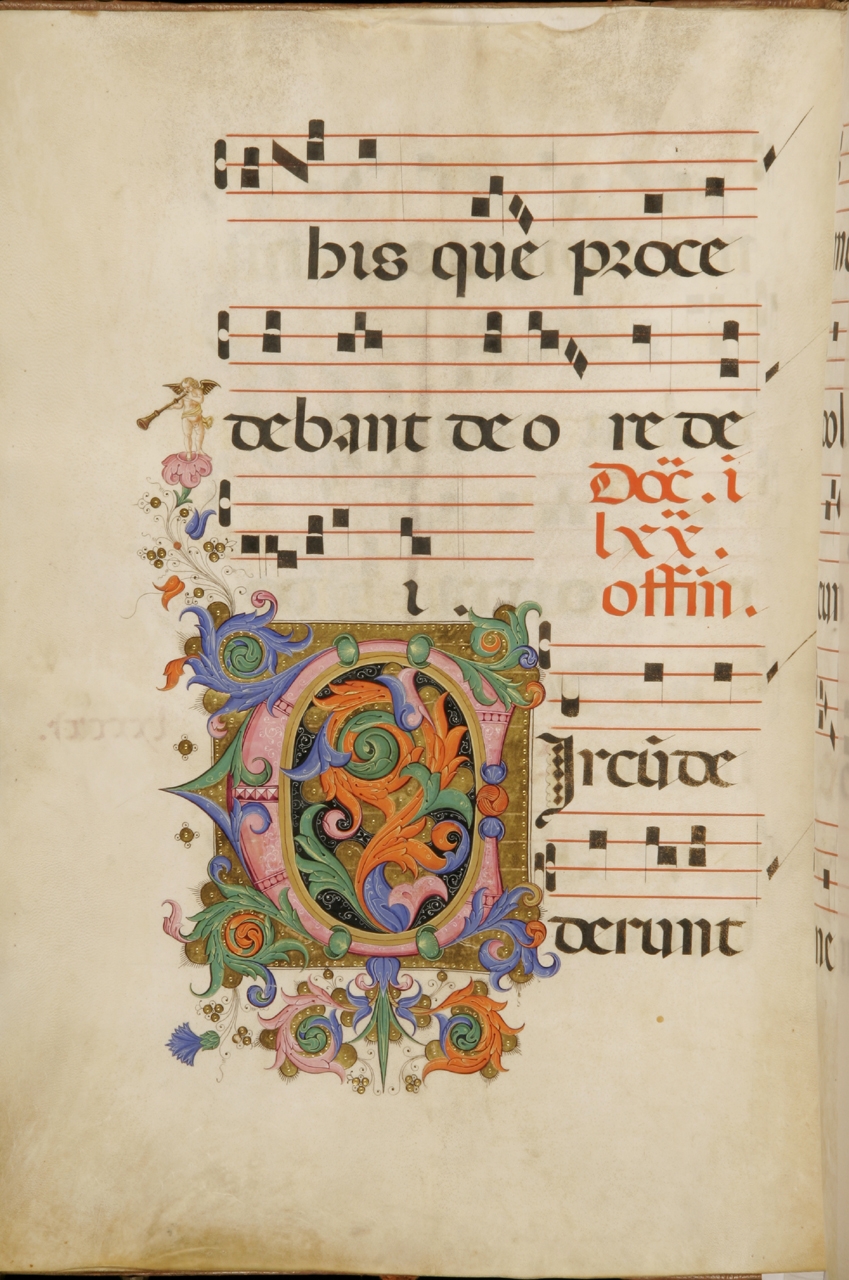 bis que proce
debant de o re de
Doc̃. i
i .
lxx̃ .
offin .
CIrcũde
derunt